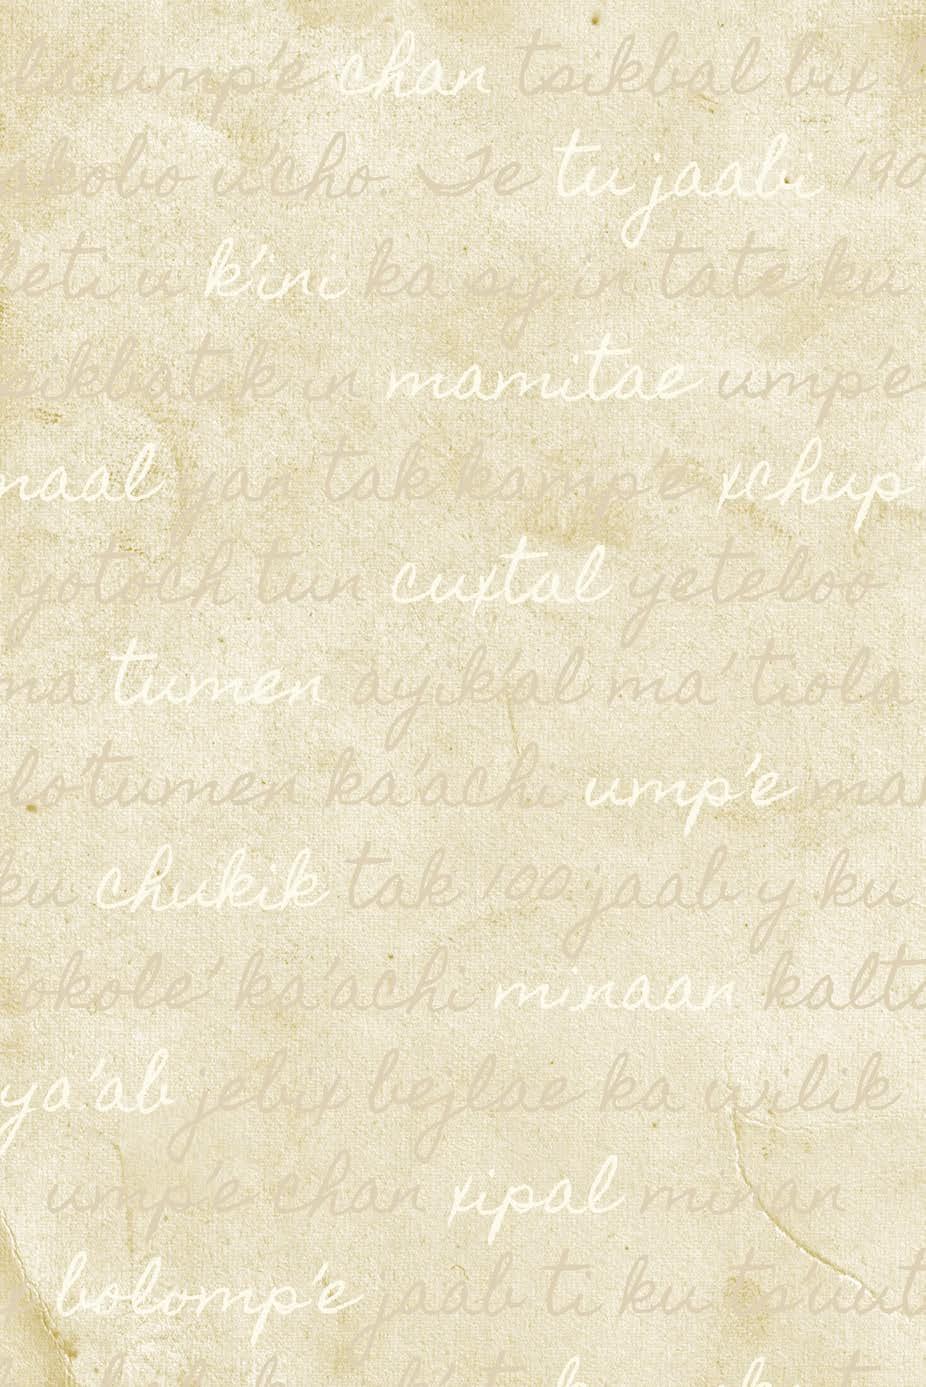 ump'e chan tsikbal bix
u'cho. Te tu jaabi 190
leti u k'ini ka sij in tate ku
tsikbatik in mamitae ump'e
naal yan tak kamp'e xchup'
yotoch tun cuxtal yeteloo
ma tumen ayik'al ma' tiola
lo' tumen ka'achi ump'e
ku chukik tak 100 jaab y ku
'okole' ka'achi minaan
ya'ab jebix bejlae ka wilik
ump'e chan xipal minan
bolomp'e jaab ti ku